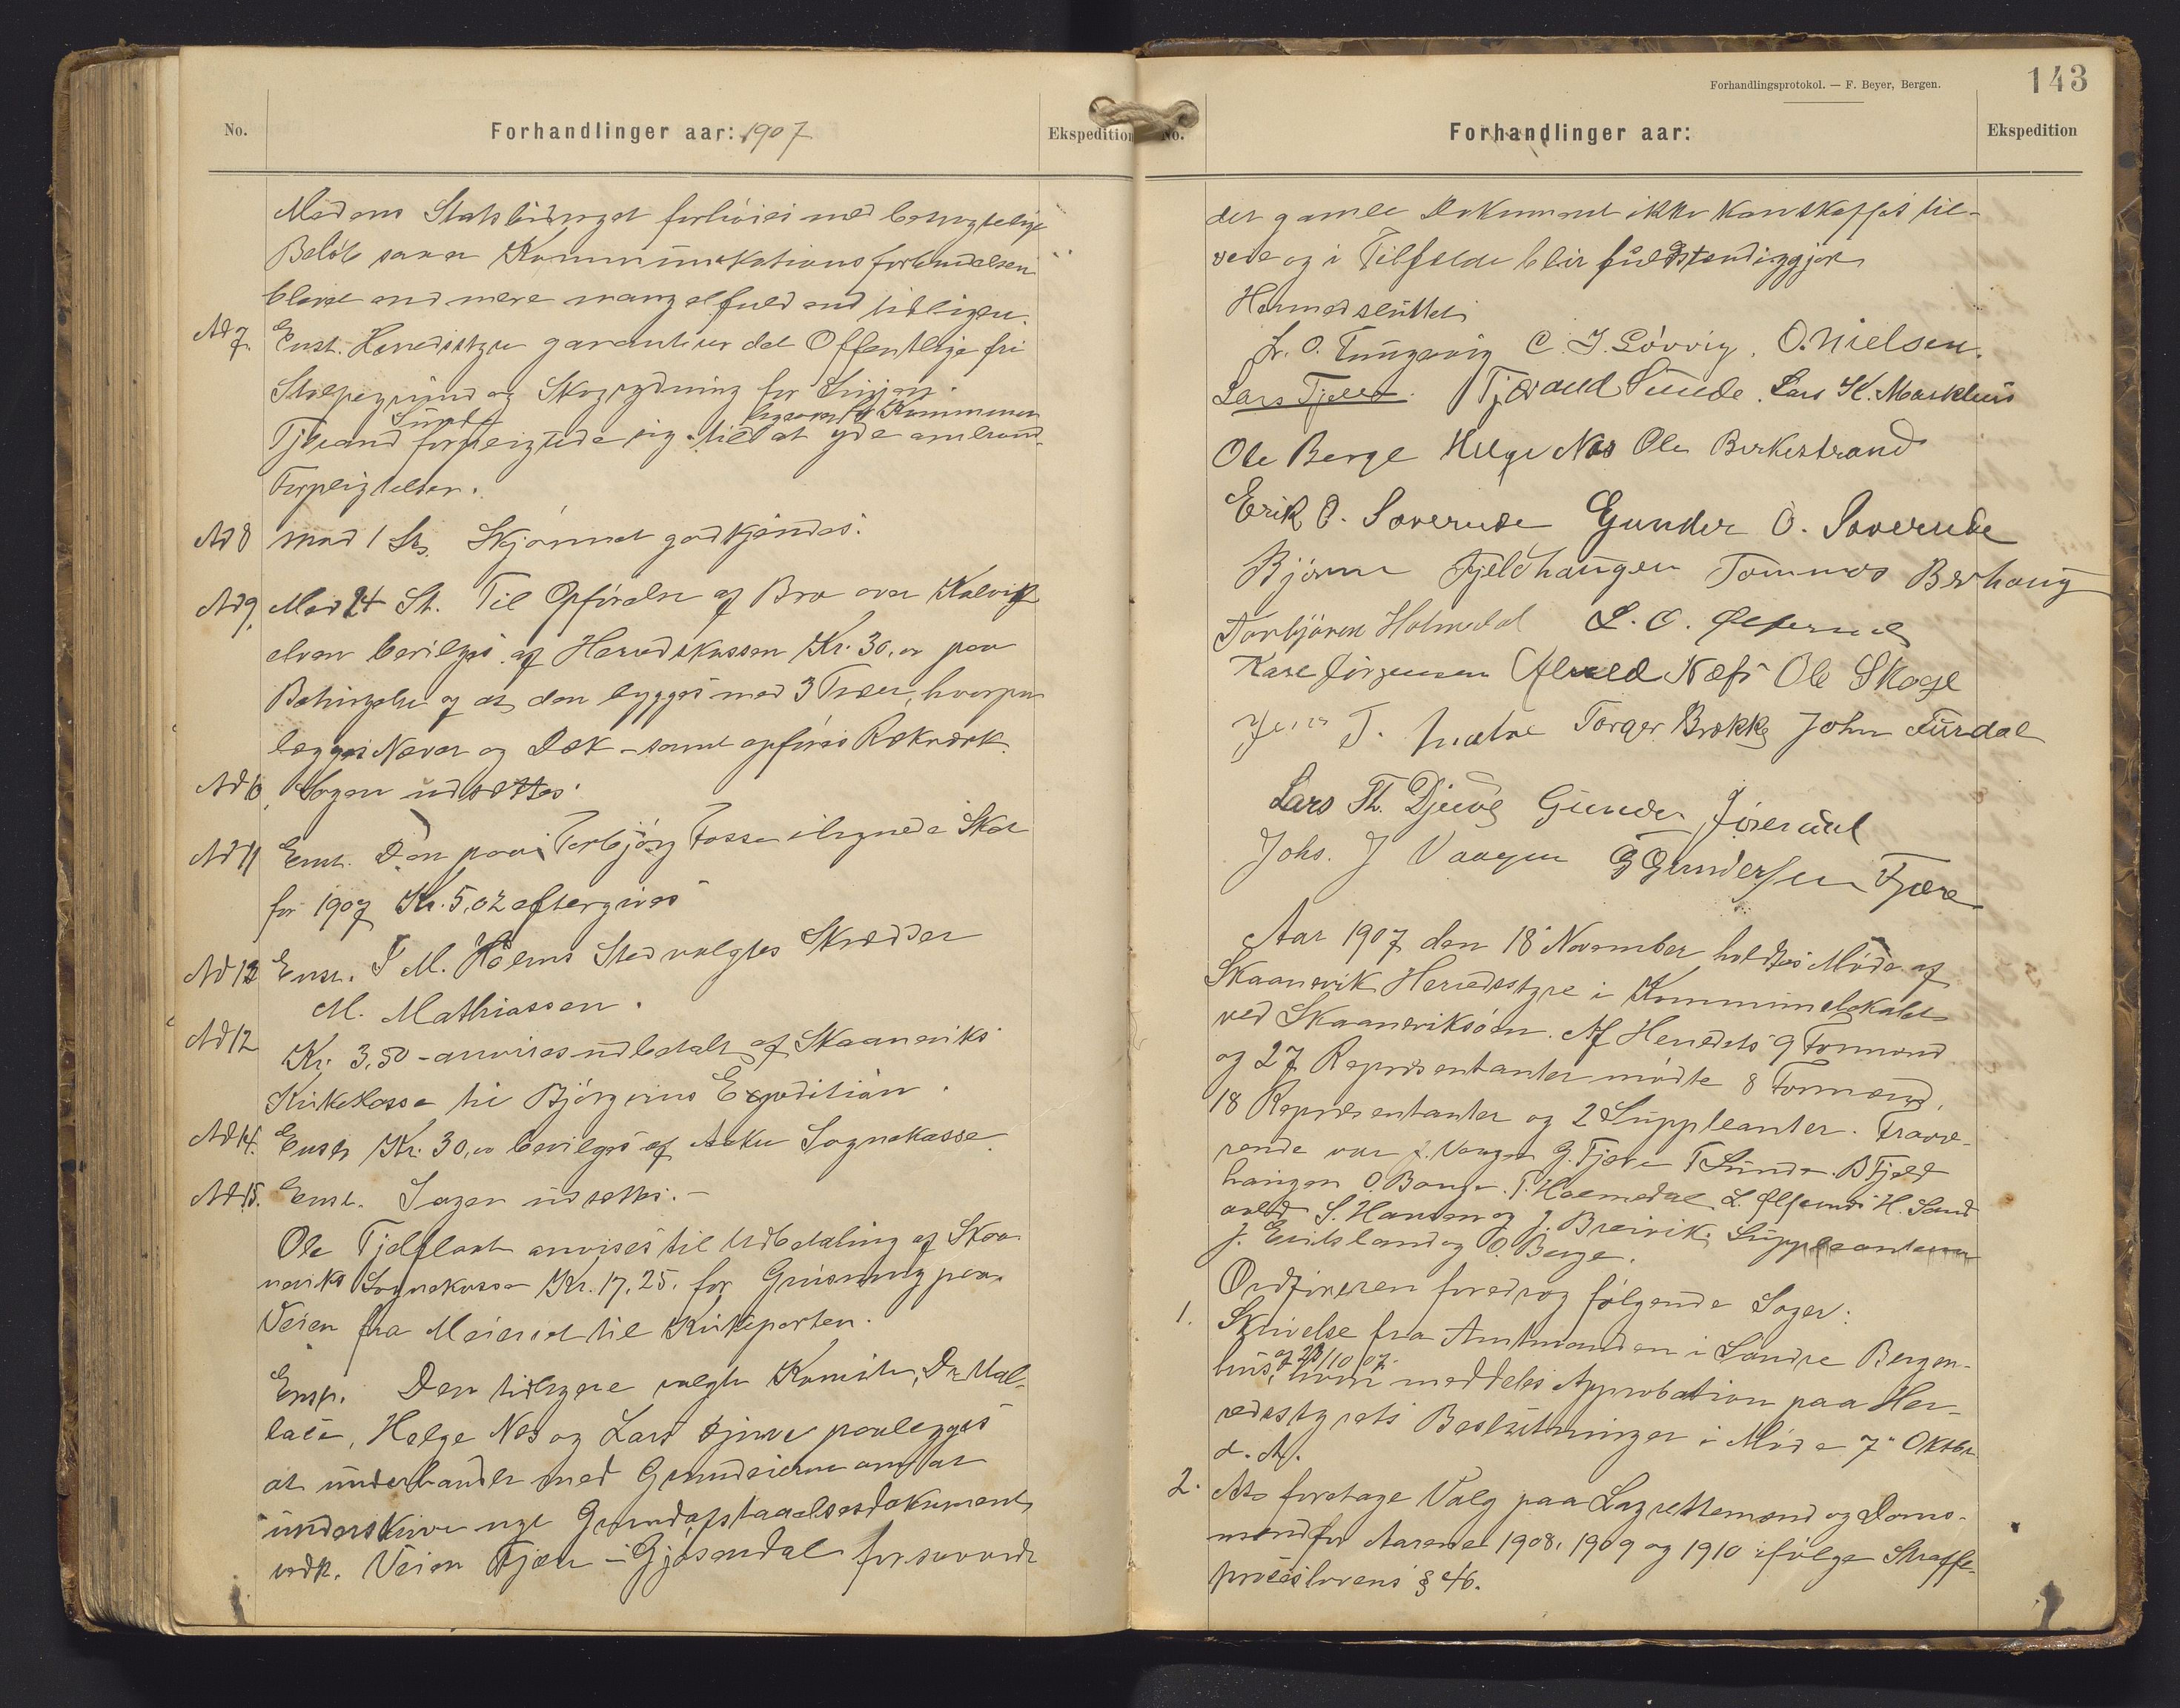 No.
Forhandlinger aar: 1907
Ekspedition
Medens Statsbidraget forhöies med betragtelige
Belöb saa er Kommunikationsforbindelsen
blevet end mere mangelfuld end tidligere.
Ad 7. Enst. Heredsstyre garanterer det Offentlige fri
Stolpegrund og Skogrydning for Linjen.
Sunde ligeoverfor Kommunen
Tjerand forpligtede sig til at yde
Forpligtelser.
Ad 8 mod 1 St. Skjönnet godkjendes.
Ad 9. Mod 24 St. Til Opförelse af Bro over Kalvik
elven bevilges af Heredskassen Kr. 30,00 paa
Betingelse af at den bygges med 3 Trær, hvorpaa
lægges Never og Dæk – samt opföres Rækværk.
Ad 10. Sagen udsættes.
Ad 11 Enst. Den paa Torbjörg Fosse ilignede Skat
for 1907 Kr. 5,02 eftergives
Ad 13 Enst. I M. Holms Sted valgtes Skrædder
M. Mathiassen.
Ad 12 Kr. 3,50 – anvises udbetalt af Skaaneviks
Kirkekasse til Björgvins Expedition.
Ad 14. Enst. Kr. 30,00 bevilges af Aakre Sognekasse.
Ad 15. Enst. Sagen udsættes. –
Ole Fjelflaat anvises til Udbetaling af Skaa-
neviks Sognekasse Kr. 17,25. for Grusning paa
Veien fra Meieriet til Kirkeporten.
Enst. Den tidligere valgte Komite, Dr. Mal-
, Helge Næs og Lars Djuve paalegges
at underhandle med Grundeierne om at
underskrive nye Grundafstaaelsesdokument
vedk. Veien Fjære – Gjøsendal forsaavidt
Forhandlingsprotokol. — F. Beyer, Bergen.
143
No.
Forhandlinger aar:
Ekspedition
det gamle Dokument ikke kan skaffes til-
veie og i Tilfelde blir fuldstendiggjort
Hermed sluttet
L. O. Tungesvig C. J. Lövvig. O. Nielsen.
Lars Fjeld. Tjærand Sunde. Lars K. Markhus
Ole Berge Helge Næs Ole Birkestrand
Erik O. Saverude Gunder O. Saverude
Björne Fjeldhaugen Tommas Berhaug
Torbjörn Holmedal L. O. Ølfernes
Kare Jörgensen Næss Ole Skage
Jens T. Torger Brekke John Furdal
Lars Th. Djuve Gunder
Johs. J Vaagen G Gundersen Fjære
Aar 1907 den 18 November holdtes Møde af
Skaanevik Heredsstyre i Kommunelokalet
ved Skaaneviksöen. Af Heredets 9 Formænd
og 27 Repræsentanter mödte 8 Formænd,
18 Repræsentanter og 2 Suppleanter. Fravæ-
rende var J. Vaage G. Fjære T Sunde. B Fjeld
haugen O. Bauge. T. Holmedal L. Ølfernes H. Sand
vold S. Hansen og J. Breivik. Suppleanterne
J. Eritsland og O. Berge.
Ordföreren foredrog fölgende Sager:
1. Skrivelse fra Amtmanden i Søndre Bergen-
hus, af 28/10 07. hvori meddeles Approbation paa Her-
redsstyrets Beslutninger i Møde 7" Oktbr
d. A.
2. At foretage Valg paa Lagrettemænd og Doms-
mænd for Aarene 1908, 1909 og 1910 ifølge Straffe-
proceslovens § 46.